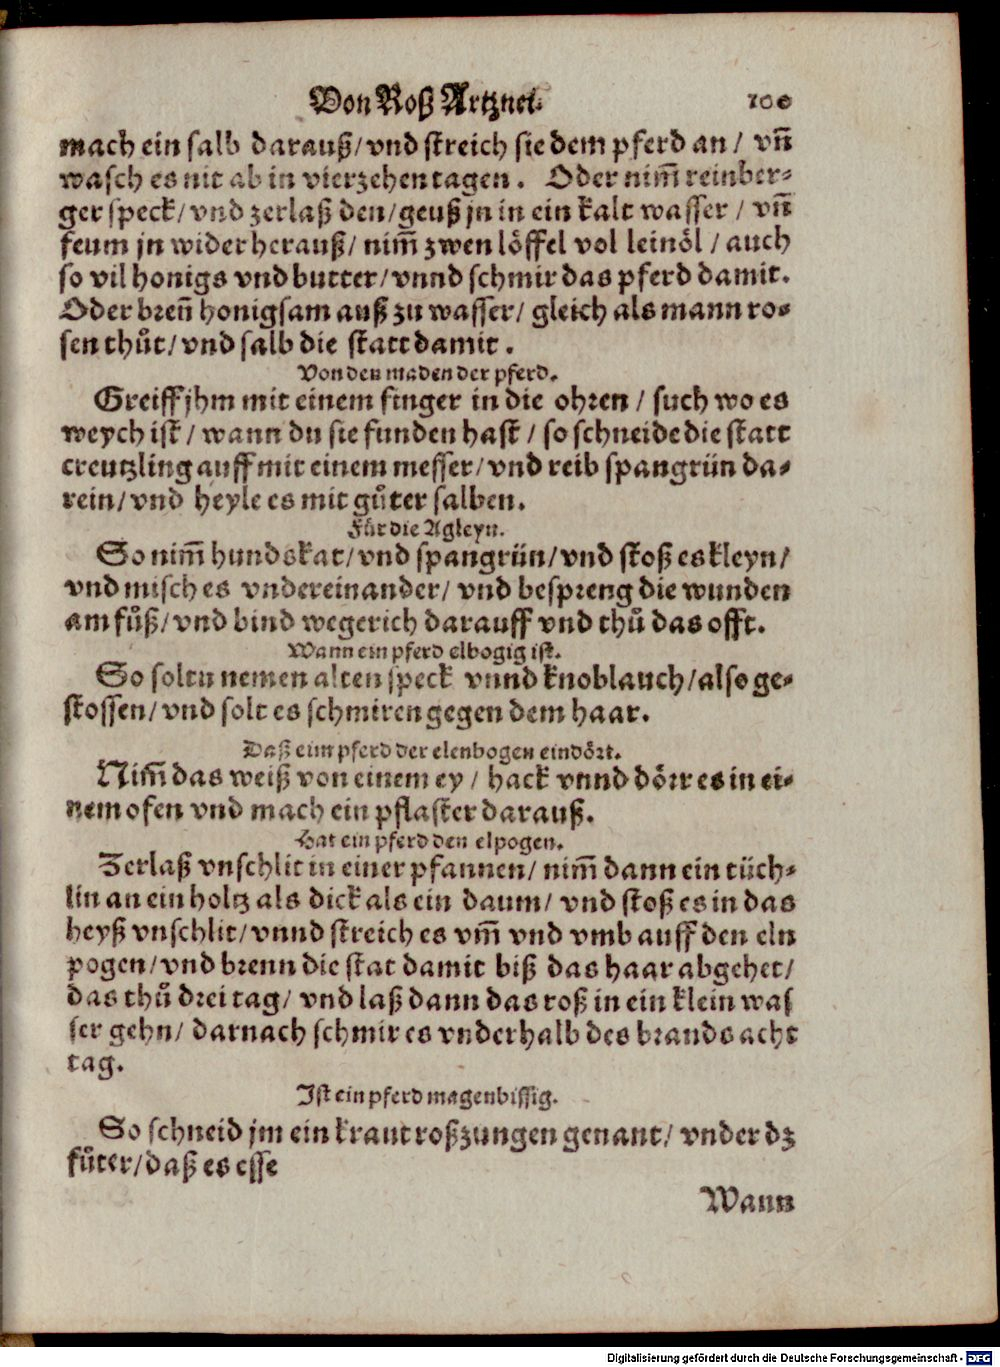 Von Roß Artznei. 100
mach ein salb darauß/vnd streich sie dem pferd an / vn̄
wasch es nit ab in vierzehen tagen. Oder nim̄ reinber-
ger speck/vnd zerlaß den/geuß jn in ein kalt wasser / vn̄
feum jn wider herauß/ nim̄ zwen löffel vol leinöl / auch
so vil honigs vnd butter/vnnd schmir das pferd damit.
Oder bren̄ honigsam auß zu wasser/ gleich als mann ro-
sen thůt/vnd salb die statt damit.
Von den maden der pferd.
Greiff jhm mit einem finger in die ohren / such wo es
weych ist / wann du sie funden hast / so schneide die statt
creutzling auff mit einem messer/vnd reib spangrün da-
rein/vnd heyle es mit gůter salben.
Für die Agleyn.
So nim̄ hundskat/vnd spangrün/vnd stoß es kleyn/
vnd misch es vndereinander/ vnd bespreng die wunden
am fůß/vnd bind wegerich darauff vnd thů das offt.
Wann ein pferd elbogig ist.
So soltu nemen alten speck vnnd knoblauch/also ge-
stossen/vnd solt es schmiren gegen dem haar.
Daß eim pferd der elenbogen eindört.
Nim̄ das weiß von einem ey / hack vnnd dörr es in ei-
nem ofen vnd mach ein pflaster darauß.
Hat ein pferd den elpogen.
Zerlaß vnschlit in einer pfannen/ nim̄ dann ein tüch-
lin an ein holtz als dick als ein daum/ vnd stoß es in das
heyß vnschlit/vnnd streich es vm̄ vnd vmb auff den eln
pogen/vnd brenn die stat damit biß das haar abgehet/
das thů drei tag/ vnd laß dann das roß in ein klein was
ser gehn/ darnach schmir es vnderhalb des brands acht
tag.
Ist ein pferd magenbissig.
So schneid jm ein kraut roßzungen genant/ vnder dz
fůter/daß es esse
Wann
Digitalisierung gefördert durch die Deutsche Forschungsgemeinschaft - DFG